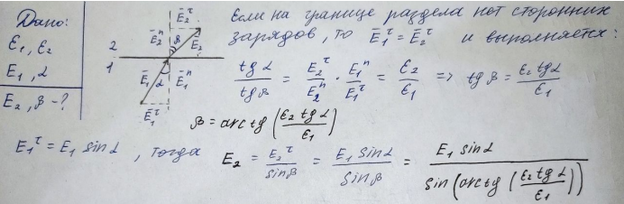 Дано:
ε₁, ε₂
E₁, α
E₂, β - ?
2
1
E̅₂ⁿ
E̅₂^τ
β
E̅₂
E̅₁
α
E̅₁ⁿ
E̅₁^τ
Если на границе раздела нет сторонних
зарядов, то E̅₁^τ = E̅₂^τ и выполняется:
tg α / tg β = E₂^τ / E₂ⁿ · E₁ⁿ / E₁^τ = ε₂ / ε₁ => tg β = ε₂ tg α / ε₁
β = arctg (ε₂ tg α / ε₁)
E₁^τ = E₁ sin α , тогда E₂ = E₂^τ / sin β = E₁ sin α / sin β = E₁ sin α / sin (arctg (ε₂ tg α / ε₁))